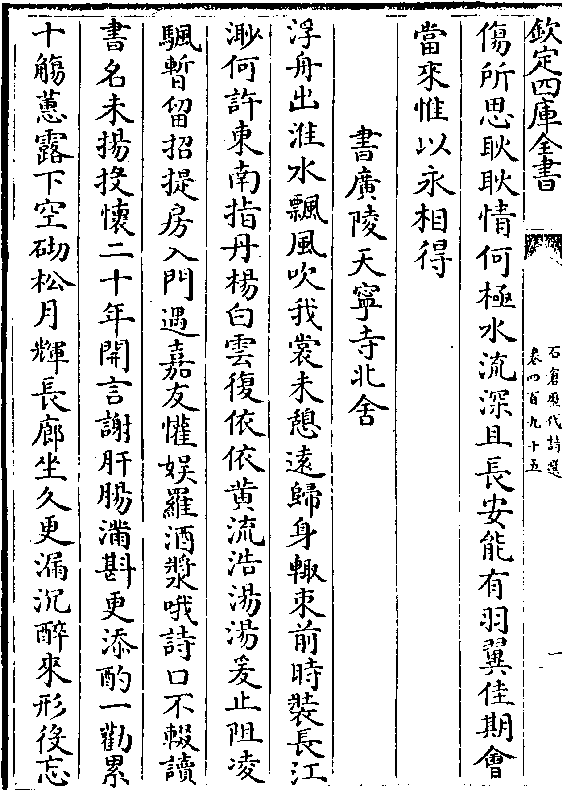 欽定四庫全書
石倉歷代詩選
卷四百九十五
一
傷所思耿耿情何極水流深且長安能有羽翼佳期會
當來惟以永相得
書廣陵天寧寺北舍
浮舟出淮水飄風吹我裳未憩遠歸身輙束前時裝長江
渺何許東南指丹楊白雲復依依黄流浩湯湯爰止阻凌
颿暫留招提房入門遇嘉友懽娱羅酒漿哦詩口不輟讀
書名未揚投懷二十年開言謝肝腸滿斟更添酌一勸累
十觴蕙露下空砌松月輝長廊坐久更漏沉醉來形役忘